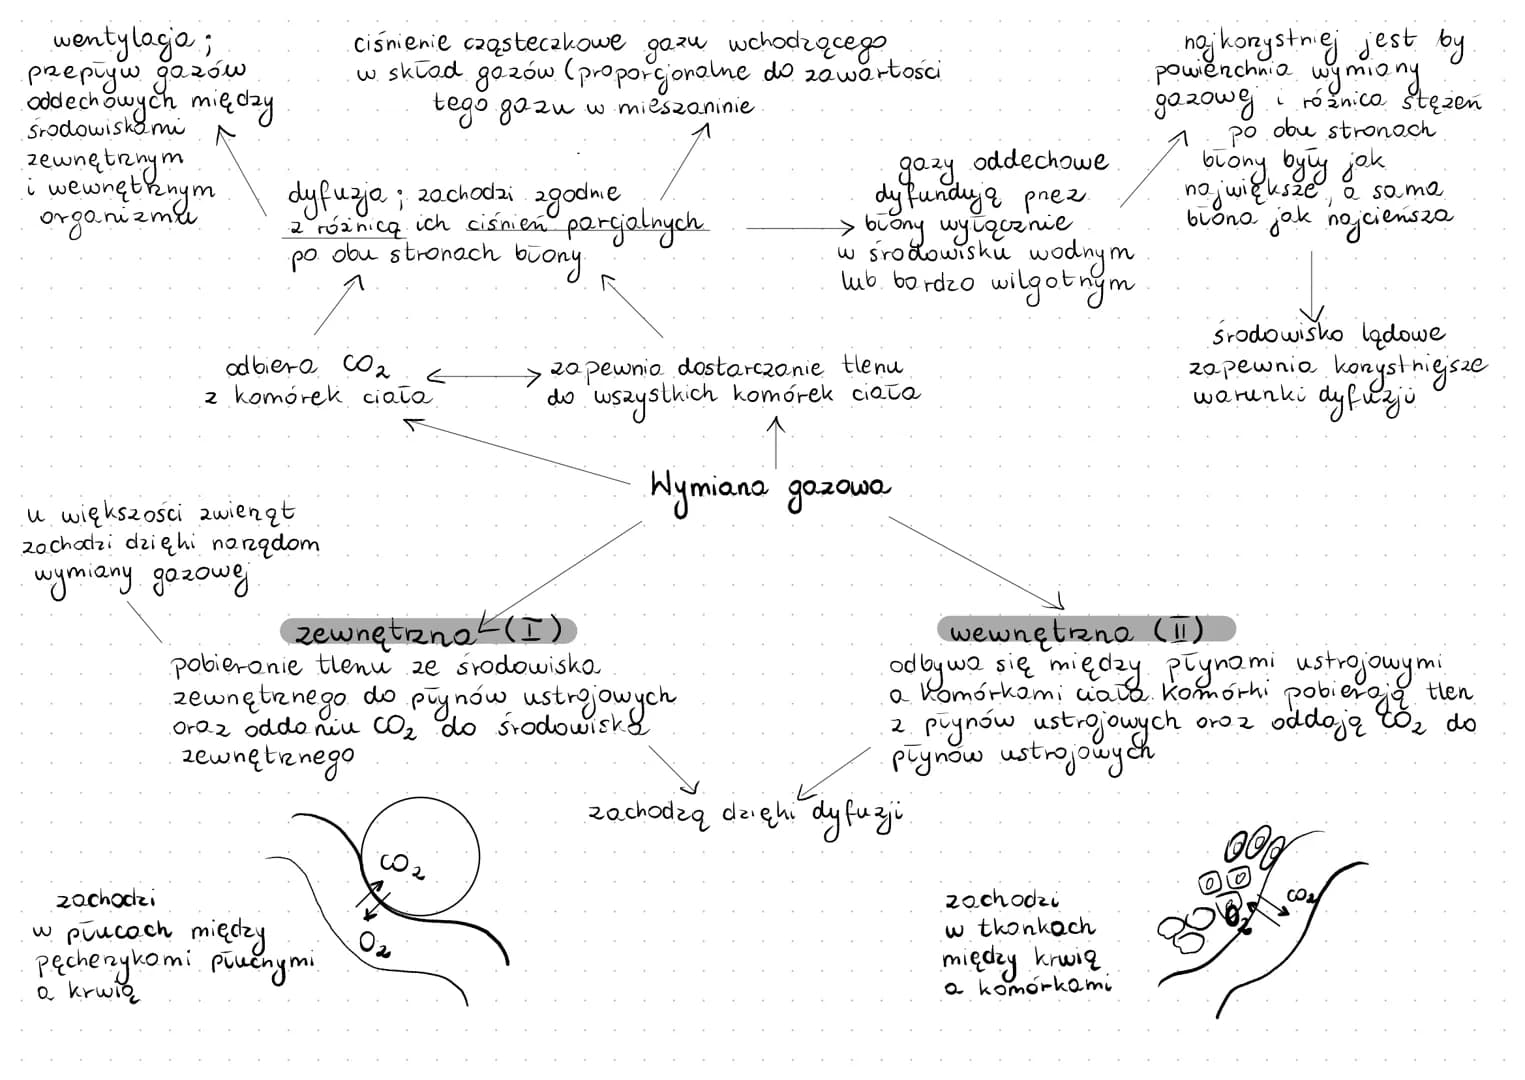 wentylacja ;
przepływ gazów
oddechowych między
środowiskami
zewnętrznym
i wewnętrznym
organizmu
ciśnienie cząsteczkowe gazu wchodzącego
w skład gazów (proporcjonalne do zawartości
tego gazu w mieszaninie
najkorzystniej jest by
powierzchnia wymiany
gazowej i różnica stężeń
po obu stronach
błony były jak
największe, a sama
błona jak najcieńsza
dyfuzja ; zachodzi zgodnie
z różnicą ich ciśnień parcjalnych
po obu stronach błony
gazy oddechowe
dyfundują przez
błony wyłącznie
w środowisku wodnym
lub bardzo wilgotnym
środowisko lądowe
zapewnia korzystniejsze
warunki dyfuzji
odbiera CO₂
z komórek ciała
zapewnia dostarczanie tlenu
do wszystkich komórek ciała
Wymiana gazowa
u większości zwierząt
zachodzi dzięki narządom
wymiany gazowej
zewnętrzna (I)
pobieranie tlenu ze środowiska
zewnętrznego do płynów ustrojowych
oraz oddaniu CO₂ do środowiska
zewnętrznego
wewnętrzna (II)
odbywa się między płynami ustrojowymi
a komórkami ciała. Komórki pobierają tlen
z płynów ustrojowych oraz oddają CO₂ do
płynów ustrojowych
zachodzą dzięki dyfuzji
zachodzi
w płucach między
pęcherzykami płucnymi
a krwią
CO₂
O₂
zachodzi
w tkankach
między krwią
a komórkami
CO₂
O₂